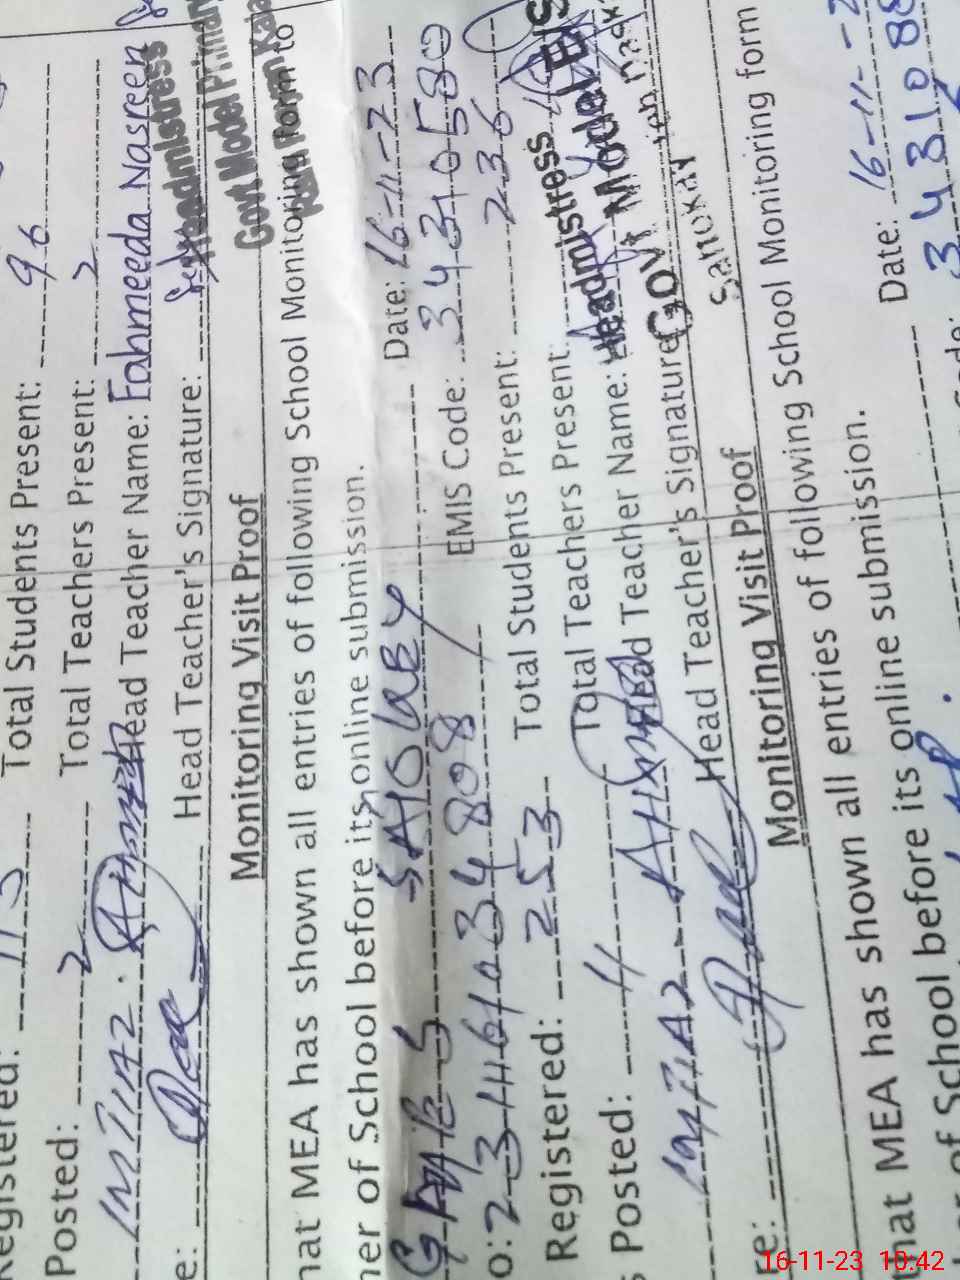 Registered: 113 Total Students Present: 96
Posted: 2 Total Teachers Present: 2
IMTIAZ Ahmad Head Teacher Name: Fahmeeda Nasreen
e: Head Teacher's Signature:
Headmistress
Govt Model Primary
Monitoring Visit Proof
hat MEA has shown all entries of following School Monitoring form to
her of School before its online submission.
GMPS SAHOWALY Date: 16-11-23
o: 23161034808 EMIS Code: 34310580
Registered: 253 Total Students Present: 236
Posted: 4 Total Teachers Present:
IMTIAZ Ahmad Head Teacher Name:
re: Head Teacher's Signature
Headmistress
Govt Model E/S
Monitoring Visit Proof
hat MEA has shown all entries of following School Monitoring form
er of School before its online submission.
Date: 16-11-2
343108
16-11-23 10:42